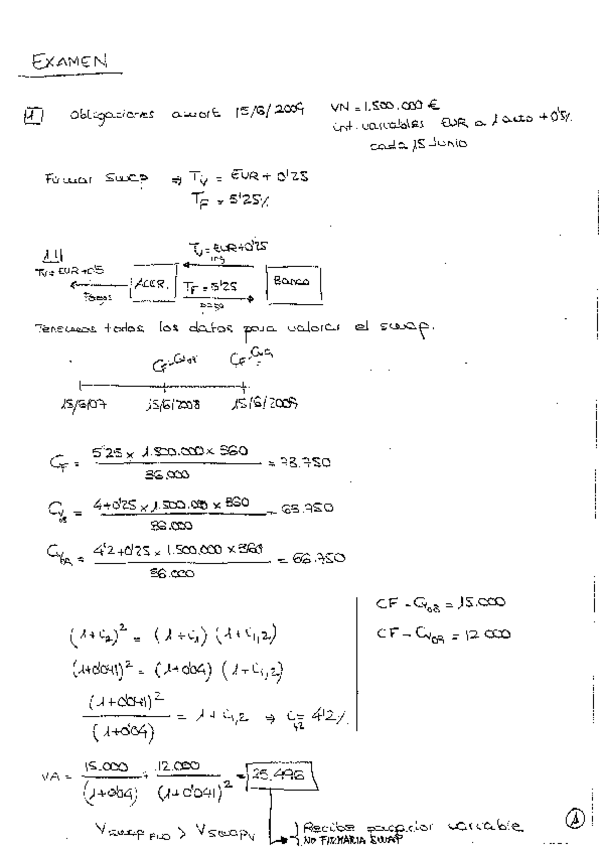 EXAMEN
1 Obligaciones amort 15/6/2009 VN = 1.500.000 €
int. variables EUR a 1 año + 0'5%
cada 15 Junio
Firmar swap ⇒ Tv = EUR + 0'25
TF = 5'25%
1.1
Tv = EUR+0'25
Tv = EUR+0'5
ACER. TF = 5'25 Banco
Pagos paga
Tenemos todos los datos para valorar el swap.
CF - Cv08 CF - Cv09
15/6/07 15/6/2008 15/6/2009
CF = 5'25 x 1.500.000 x 360 / 36.000 = 78.750
Cv08 = 4+0'25 x 1.500.000 x 360 / 36.000 = 63.750
Cv09 = 4'2+0'25 x 1.500.000 x 360 / 36.000 = 66.750
CF - Cv08 = 15.000
CF - Cv09 = 12 000
(1+i2)² = (1+i1) (1+i1,2)
(1+0'041)² = (1+0'04) (1+i1,2)
(1+0'041)² / (1+0'04) = 1+i1,2 ⇒ i1,2 = 4'2%
VA = 15.000 / (1+0'04) + 12.000 / (1+0'041)² = 25.496
Vswap FIJO > Vswap V
Recibe pagador variable
NO FIRMARIA SWAP
1